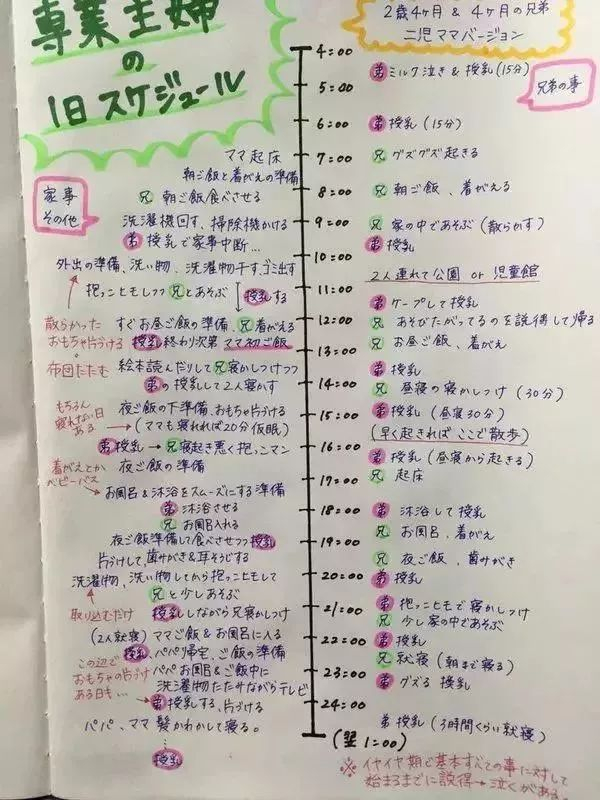 専業主婦
の
1日スケジュール
2歳4ヶ月 & 4ヶ月の兄弟
二児ママバージョン
家事
その他
兄弟の事
4:00
5:00
6:00
7:00
8:00
9:00
10:00
11:00
12:00
13:00
14:00
15:00
16:00
17:00
18:00
19:00
20:00
21:00
22:00
23:00
24:00
(翌1:00)
ママ起床
朝ご飯と着がえの準備
兄 朝ご飯食べさせる
洗濯機回す、掃除機かける
弟 授乳で家事中断…
外出の準備、洗い物、洗濯物干す、ゴミ出す
抱っこひもしつつ兄とあそぶ
授乳する
散らかった
おもちゃ片づける
すぐお昼ご飯の準備、兄着がえる
授乳終わり次第 ママ初ご飯
布団たたむ
絵本読んだりして兄寝かしつけつつ
弟の授乳して2人寝かす
もちろん
寝れない日
ある
夜ご飯の下準備、おもちゃ片づける
(ママも寝れれば20分仮眠)
弟授乳→兄寝起き悪く抱っこマン
着がえとか
ベビーバス
夜ご飯の準備
お風呂&沐浴をスムーズにする準備
弟 沐浴させる
兄 お風呂入れる
夜ご飯準備して食べさせつつ授乳
片づけして、歯みがき&耳そうじする
洗濯物、洗い物してから抱っこひもして
兄と少しあそぶ
取り込むだけ
授乳しながら兄寝かしつけ
(2人就寝) ママご飯&お風呂に入る
授乳、パパ帰宅、ご飯の準備
この辺で
おもちゃの片づけ
ある日も…
パパお風呂&ご飯中に
洗濯物たたみながらテレビ
弟 授乳する、片づける
パパ、ママ 髪かわかして寝る。
授乳
弟 ミルク泣き & 授乳(15分)
弟 授乳(15分)
兄 グズグズ起きる
兄 朝ご飯、着がえる
兄 家の中であそぶ(散らかす)
弟 授乳
2人連れて公園 or 児童館
弟 ケープして授乳
兄 あそびたがってるのを説得して帰る
兄 お昼ご飯、着がえ
弟 授乳
兄 昼寝の寝かしつけ(30分)
弟 授乳(昼寝30分)
(早く起きれば ここで散歩)
弟 授乳(昼寝から起きる)
兄 起床
弟 沐浴して授乳
兄 お風呂、着がえ
兄 夜ご飯、歯みがき
弟 授乳
弟 抱っこひもで寝かしつけ
兄 少し家の中であそぶ
弟 授乳
兄 就寝(朝まで寝る)
弟 グズる 授乳
弟 授乳(3時間くらい就寝)
※イヤイヤ期で基本すべての事に対して
始まるまでに説得→泣くがある。